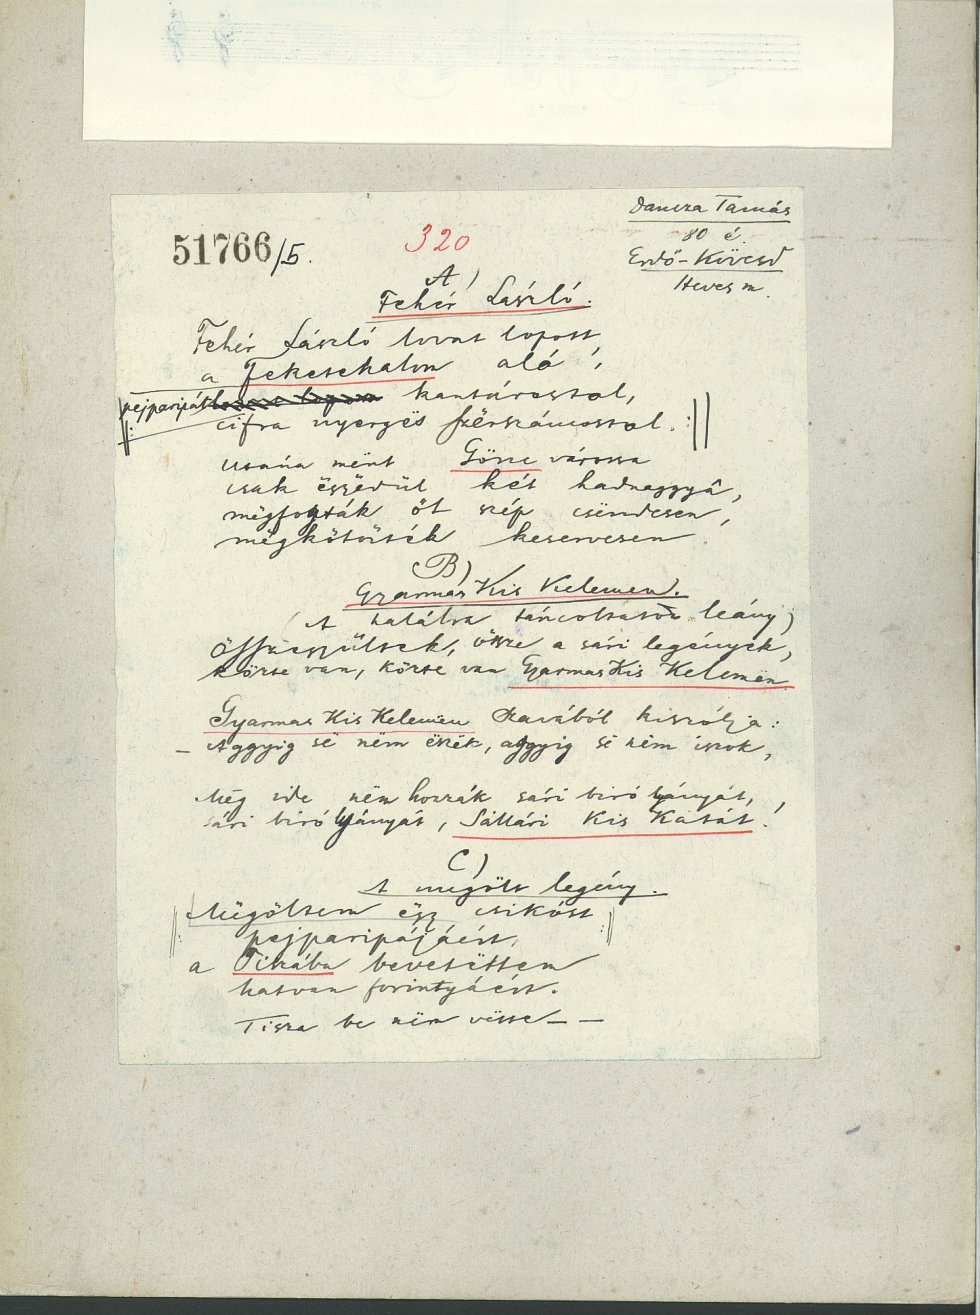 Dancza Tamás
80 é.
Erdő-Kövesd
Heves m.
51766/5.
320
A)
Fehér László.
Fehér László lovat lopott
a Feketehalom aló,
pejparipát kantárostol,
cifra nyergës szërszámostol.
utána mënt Gönc városa
csak ësszëdűl két hadnaggyâ,
mëgfogták őt szép csëndesen,
mëgkötöték keservesen
B)
Gyarmas Kis Kelemen.
(A halálra táncoltatott leány)
Összegyűltek, össze a sári legények,
körte van, körte van Gyarmas Kis Kelemën
Gyarmas Kis Kelemen szavából kiszólja:
– Aggyig së nëm ëszëk, aggyig së nëm iszok,
Még ide nëm hozzák sári biró lyányát,
sári biró lyányát, Sallári Kis Katát!
C)
A megölt legény.
Mëgöltem ëgy csikóst
pejparipájáért,
a Tiszába bevetëttem
hatvan forintyáért.
Tisza be nëm vëtte – –